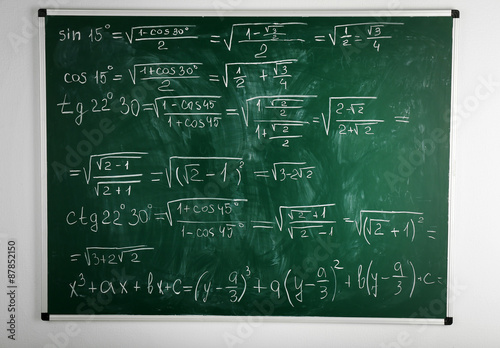 sin 15° = √((1-cos30°)/2) = √((1-√3/2)/2) = √(1/2 = √3/4)
cos 15° = √((1+cos30°)/2) = √(1/2 + √3/4)
tg 22° 30 = √((1-cos45)/(1+cos45)) = √((1 √2/2)/(1+√2/2)) = √((2-√2)/(2+√2)) =
= √((√2-1)/(√2+1)) = √((√2-1)²) = √(3-2√2)
ctg 22° 30° = √((1+cos45°)/(1-cos45°)) = √((√2+1)/(√2-1)) = √((√2+1)²) =
= √(3+2√2)
x³+ax+bx+c=(y-a/3)³+a(y-a/3)²+b(y-a/3)·c=
#87852150